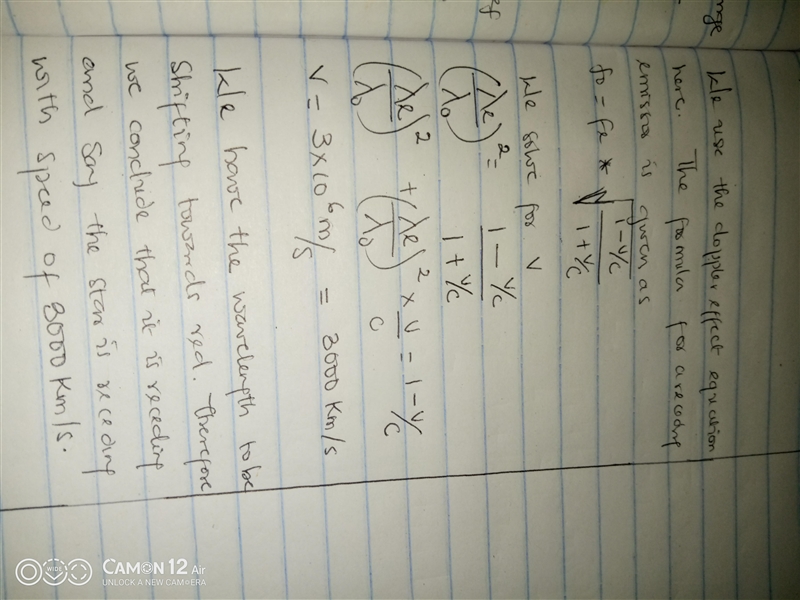 We use the doppler effect equation
here. The formula for a receding
emission is given as
fo = fe * √(1 - v/c / 1 + v/c)
We solve for v
(λe/λo)² = 1 - v/c / 1 + v/c
(λe/λo)² + (λe/λo)² × v/c = 1 - v/c
v = 3×10⁶ m/s = 3000 Km/s
We have the wavelength to be
shifting towards red. Therefore
we conclude that it is receding
and say the star is receding
with speed of 3000 Km/s.
WIDE
CAMON 12 Air
UNLOCK A NEW CAMERA